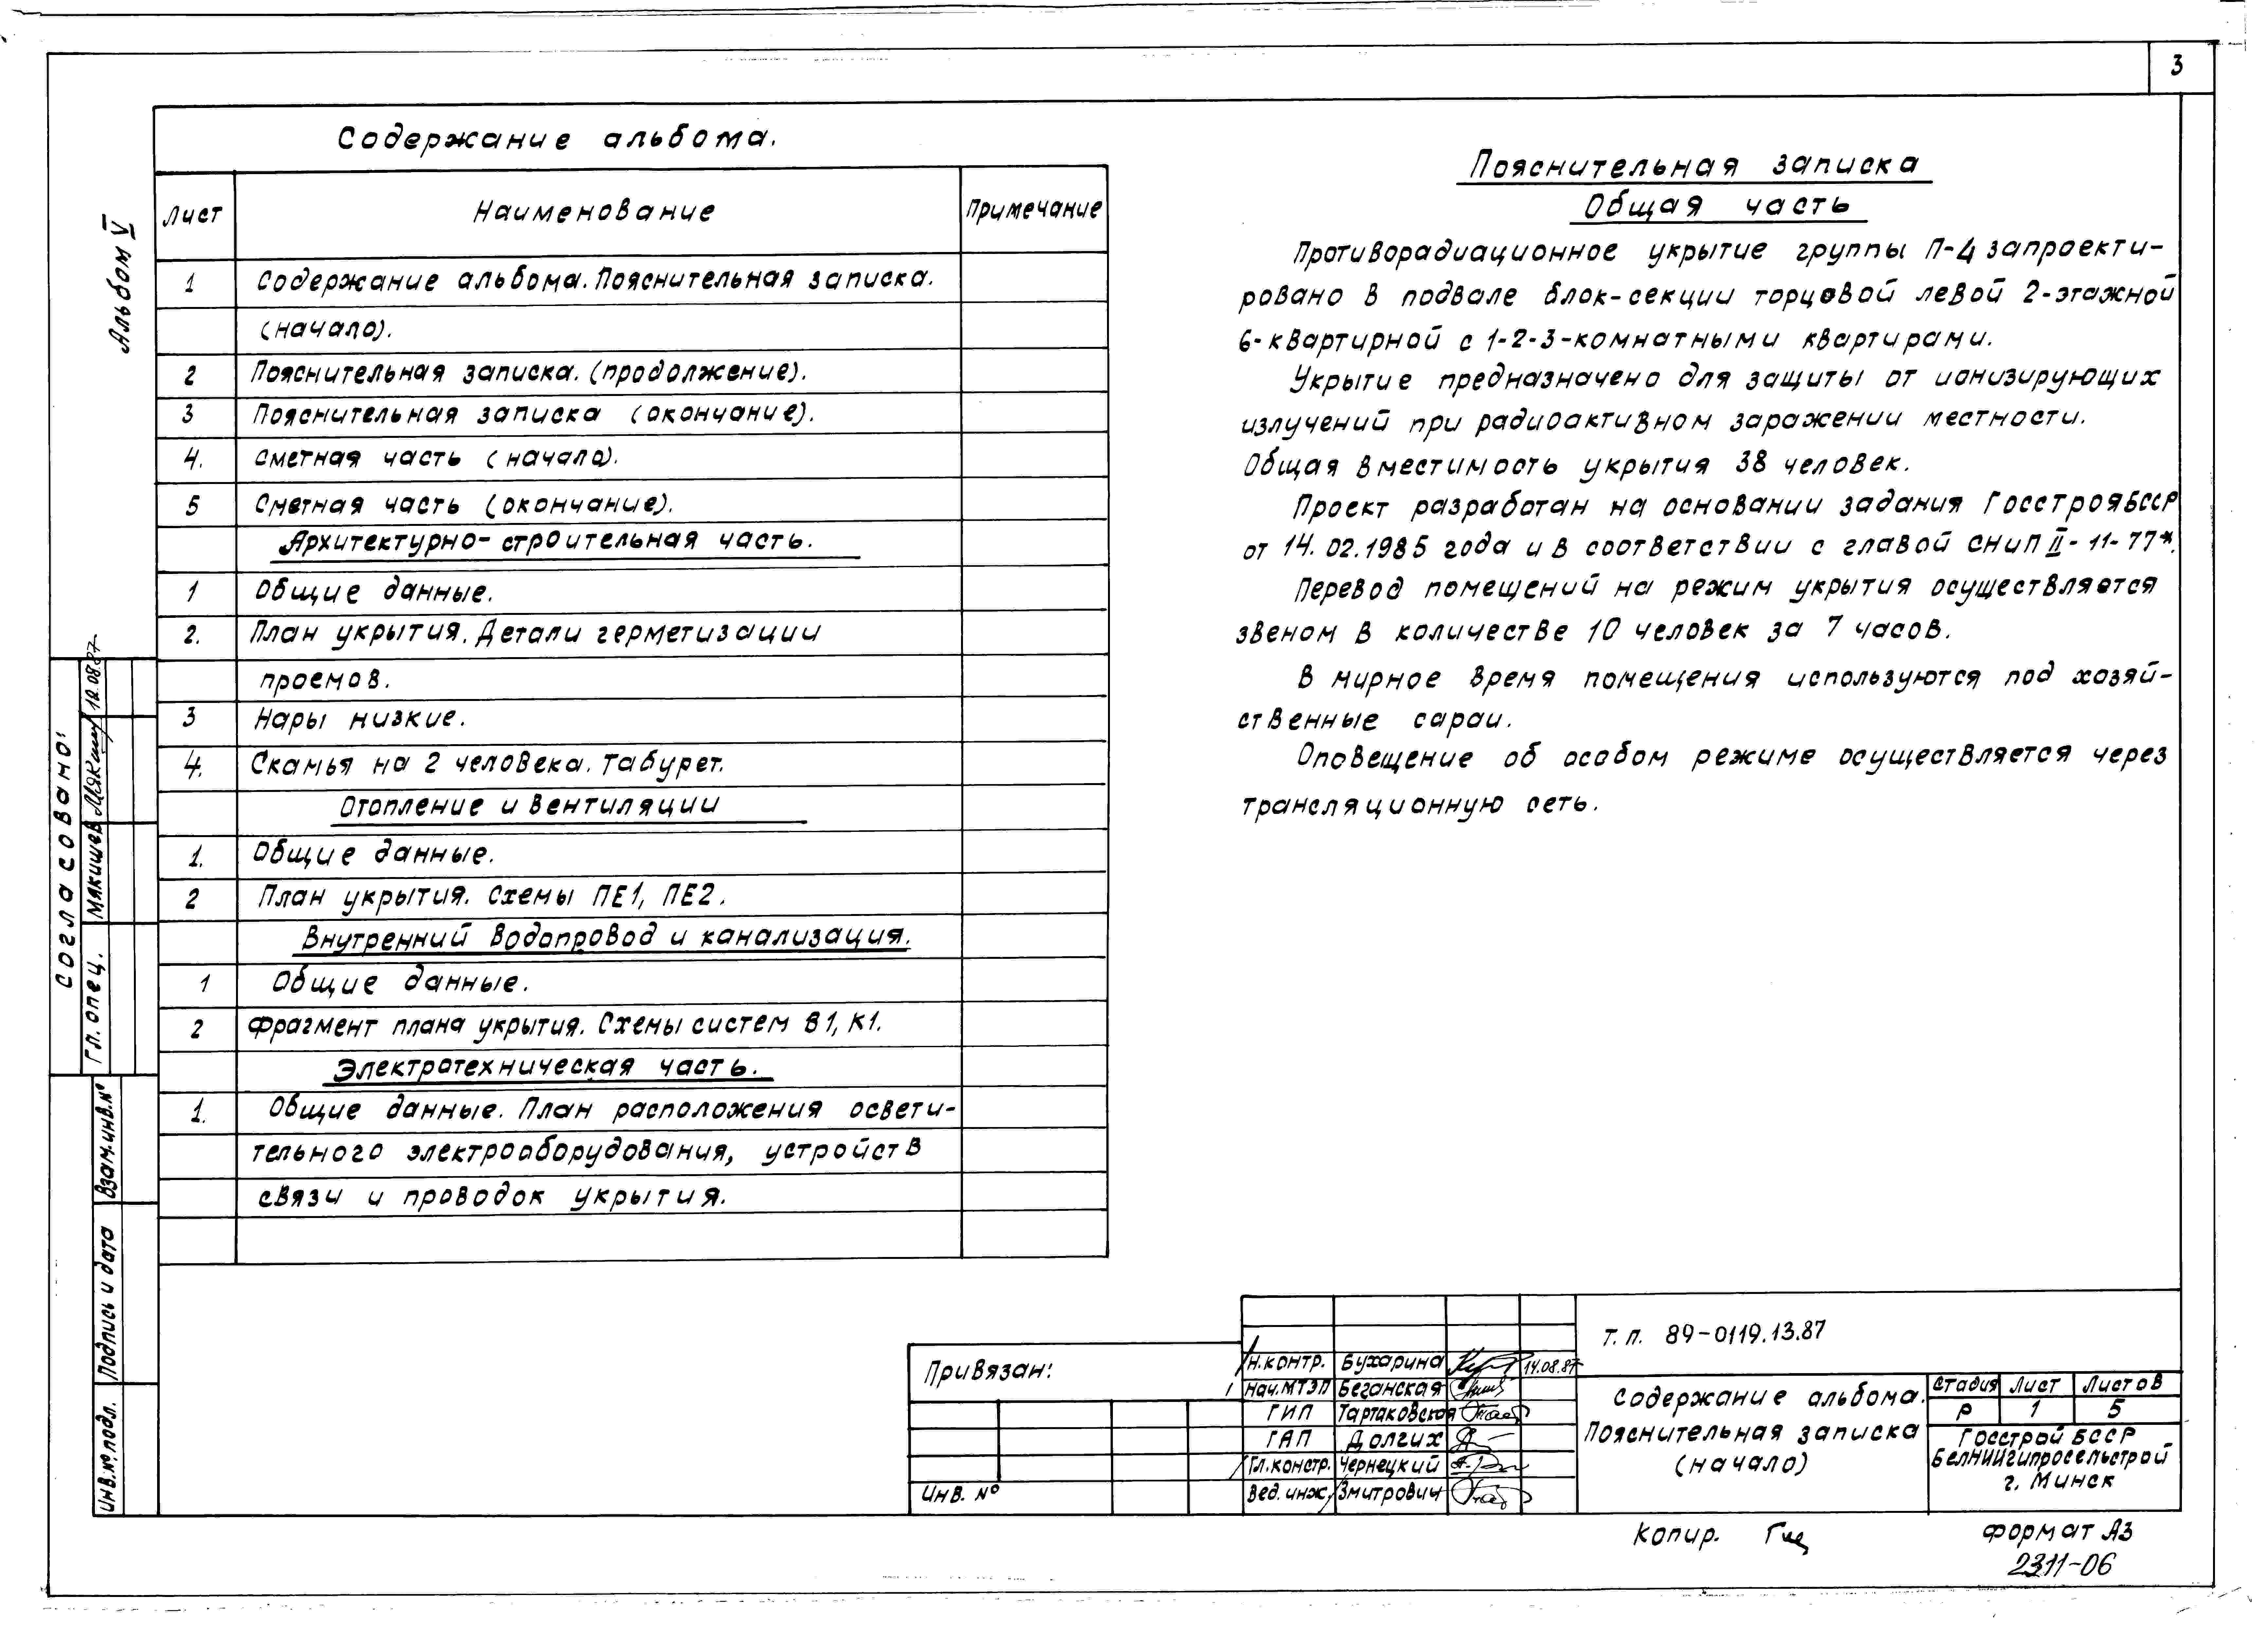 3
Альбом V
Содержание альбома.
Лист Наименование Примечание
1 Содержание альбома. Пояснительная записка.
(начало).
2 Пояснительная записка. (продолжение).
3 Пояснительная записка (окончание).
4. Сметная часть (начало).
5 Сметная часть (окончание).
Архитектурно-строительная часть.
1 Общие данные.
2. План укрытия. Детали герметизации
проемов.
3 Нары низкие.
4. Скамья на 2 человека. Табурет.
Отопление и вентиляции
1. Общие данные.
2 План укрытия. Схемы ПЕ1, ПЕ2.
Внутренний водопровод и канализация.
1 Общие данные.
2 Фрагмент плана укрытия. Схемы систем В1, К1.
Электротехническая часть.
1. Общие данные. План расположения освети-
тельного электрооборудования, устройств
связи и проводок укрытия.
Пояснительная записка
Общая часть
Противорадиационное укрытие группы П-4 запроекти-
ровано в подвале блок-секции торцовой левой 2-этажной
6-квартирной с 1-2-3-комнатными квартирами.
Укрытие предназначено для защиты от ионизирующих
излучений при радиоактивном заражении местности.
Общая вместимость укрытия 38 человек.
Проект разработан на основании задания Госстроя БССР
от 14.02.1985 года и в соответствии с главой СНиП II-11-77*.
Перевод помещений на режим укрытия осуществляется
звеном в количестве 10 человек за 7 часов.
В мирное время помещения используются под хозяй-
ственные сараи.
Оповещение об особом режиме осуществляется через
трансляционную сеть.
Согласовано:
Гл. спец. Мякишев 12.08.87
Взам.инв.№
Подпись и дата
Инв.№ подл.
Привязан:
Инв. №
Н.контр. Бухарина 14.08.87
Нач.МТЭП Беганская
ГИП Тартаковская
ГАП Долгих
Гл.констр. Чернецкий
Вед.инж. Змитрович
Т.п. 89-0119.13.87
Содержание альбома.
Пояснительная записка
(начало)
Стадия Лист Листов
Р 1 5
Госстрой БССР
Белниигипросельстрой
г. Минск
Копир.
Формат А3
2311-06